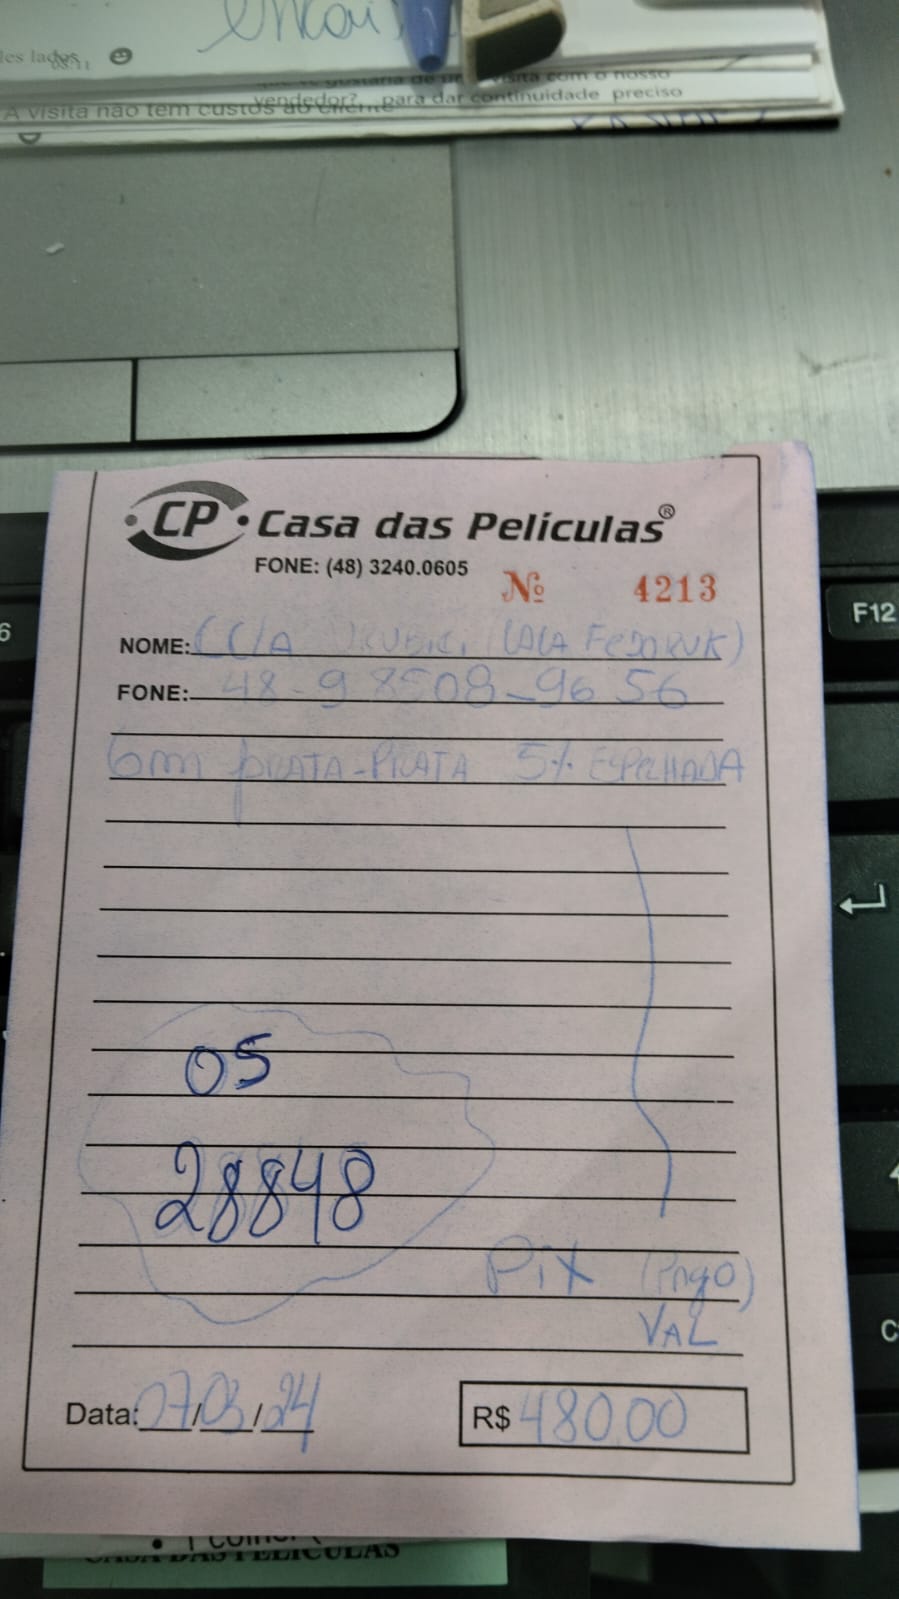 les lados
08:11
visita com o nosso
vendedor?, para dar continuidade preciso
A visita não tem custos ao cliente
CP Casa das Películas®
FONE: (48) 3240.0605
Nº 4213
NOME: (LALA FEDORUK)
FONE: 48-98508-9656
6m PRATA-PRATA 5% ESPELHADA
05
28848
Pix (Pago)
VAL
Data: 07/03/24
R$ 480,00
CASA DAS PELICULAS
6
F12